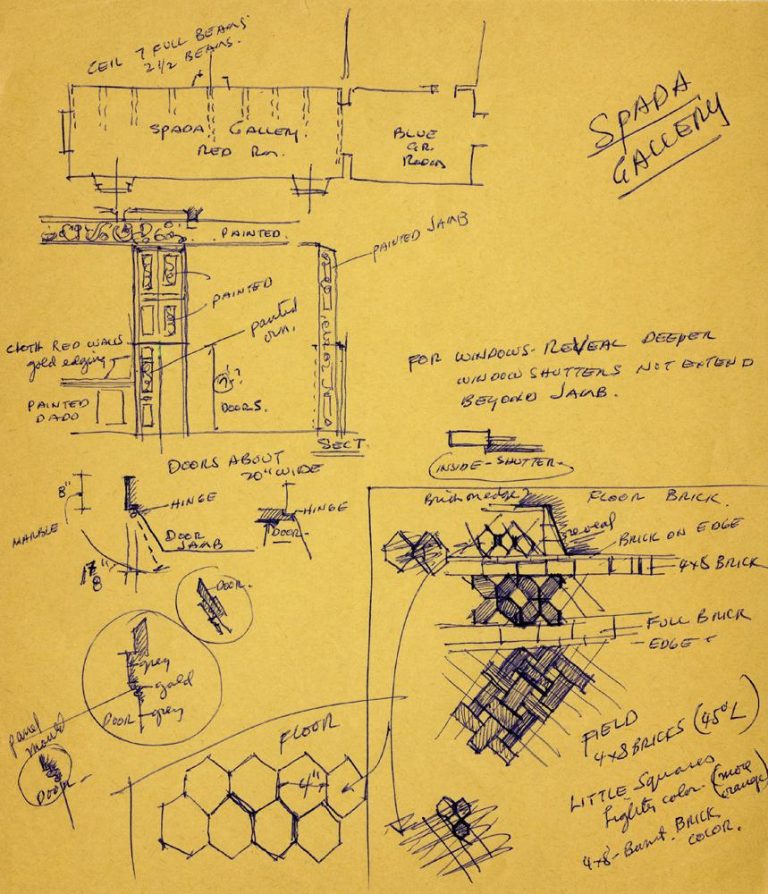 CEIL 7 FULL BEAMS
2 1/2 BEAMS.
SPADA GALLERY
RED RM.
BLUE
GR.
ROOM
SPADA
GALLERY
PAINTED
PAINTED JAMB
PAINTED
painted
CLOTH RED WALLS
gold edging
PAINTED
DADO
DOORS.
SECT.
FOR WINDOWS-REVEAL DEEPER
WINDOW SHUTTERS NOT EXTEND
BEYOND JAMB.
INSIDE-SHUTTER
DOORS ABOUT
20" WIDE
8"
HINGE
MARBLE
DOOR
JAMB
HINGE
DOOR
DOOR.
grey
gold
DOOR - grey
panel
mould
DOOR
FLOOR
4"
Brick on edge
FLOOR BRICK.
reveal
BRICK ON EDGE
4x8 BRICK
FULL BRICK
EDGE
FIELD
4x8 BRICKS (45° L)
LITTLE SQUARES
lighter color (more
orange)
4x8 - Burnt. BRICK
COLOR.